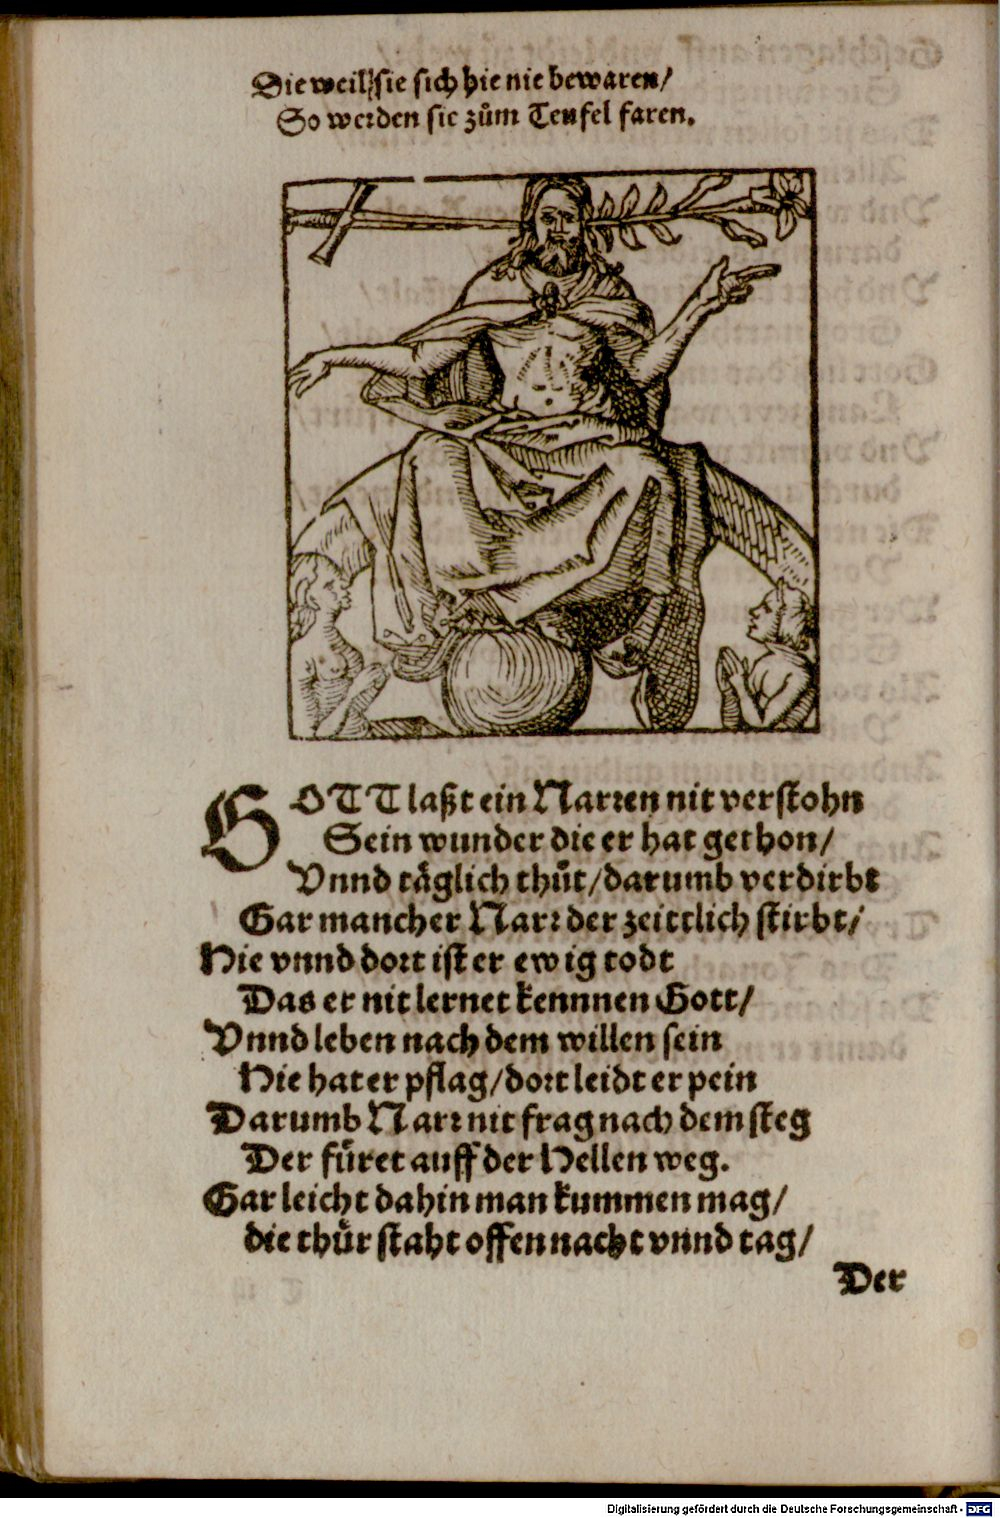 Die weil sie sich hie nie bewaren/
So werden sie zům Teufel faren.
GOTT laßt ein Narren nit verstohn
Sein wunder die er hat gethon/
Vnnd täglich thůt/darumb verdirbt
Gar mancher Narr der zeittlich stirbt/
Hie vnnd dort ist er ewig todt
Das er nit lernet kennnen Gott/
Vnnd leben nach dem willen sein
Hie hat er pflag/dort leidt er pein
Darumb Narr nit frag nach dem steg
Der füret auff der Hellen weg.
Gar leicht dahin man kummen mag/
die thür staht offen nacht vnnd tag/
Der
Digitalisierung gefördert durch die Deutsche Forschungsgemeinschaft - DFG